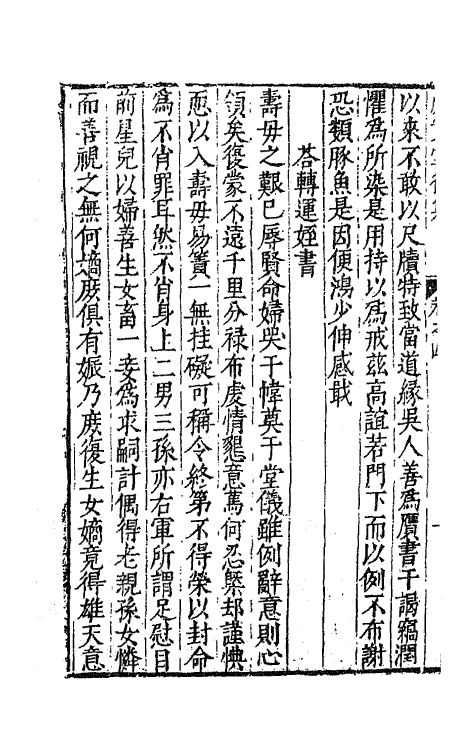 以來不敢以尺牘特致當道緣吳人善爲贋書干謁竊潤
懼爲所染是用持以爲戒茲高誼若門下而以例不布謝
恐類豚魚是因便鴻少伸感戢
荅轉運姪書
壽母之艱已辱賢命婦哭于幃奠于堂儀雖例辭意則心
領矣復蒙不遠千里分祿布虔情懇意篤何忍槩却謹惧
愿以入壽母易簀一無挂礙可稱令終第不得榮以封命
爲不肖罪耳然不肖身上二男三孫亦右軍所謂足慰目
前星兒以婦善生女畜一妾爲求嗣計偶得老親孫女憐
而善視之無何嫡庶俱有娠乃庶復生女嫡竟得雄天意